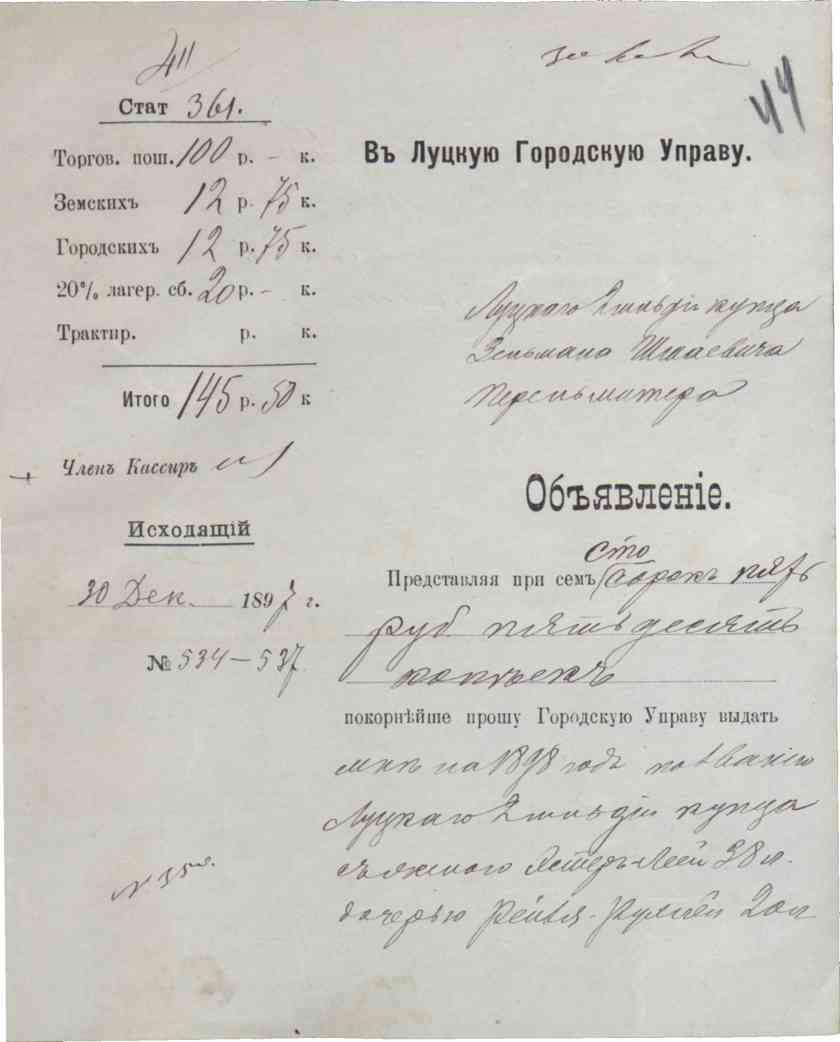 411
44
Стат 361.
Торгов. пош. 100 р. – к.
Земскихъ 12 р. 75 к.
Городскихъ 12 р. 75 к.
20% лагер. сб. 20 р. – к.
Трактир. р. к.
Итого 145 р. 50 к
Членъ Кассиръ
Исходящій
30 Дек. 1897 г.
№ 534–537
Въ Луцкую Городскую Управу.
Луцкаго 2 гильдіи купца
Зельмана
Перельмутера
Объявленіе.
сто
Представляя при семъ сорокъ пять
руб пятьдесятъ
копѣекъ
покорнѣйше прошу Городскую Управу выдать
мнѣ на 1898 годъ по званію
Луцкаго 2 гильдіи купца
съ женою Эстеръ-Леей 38 л.
дочерью 20 л